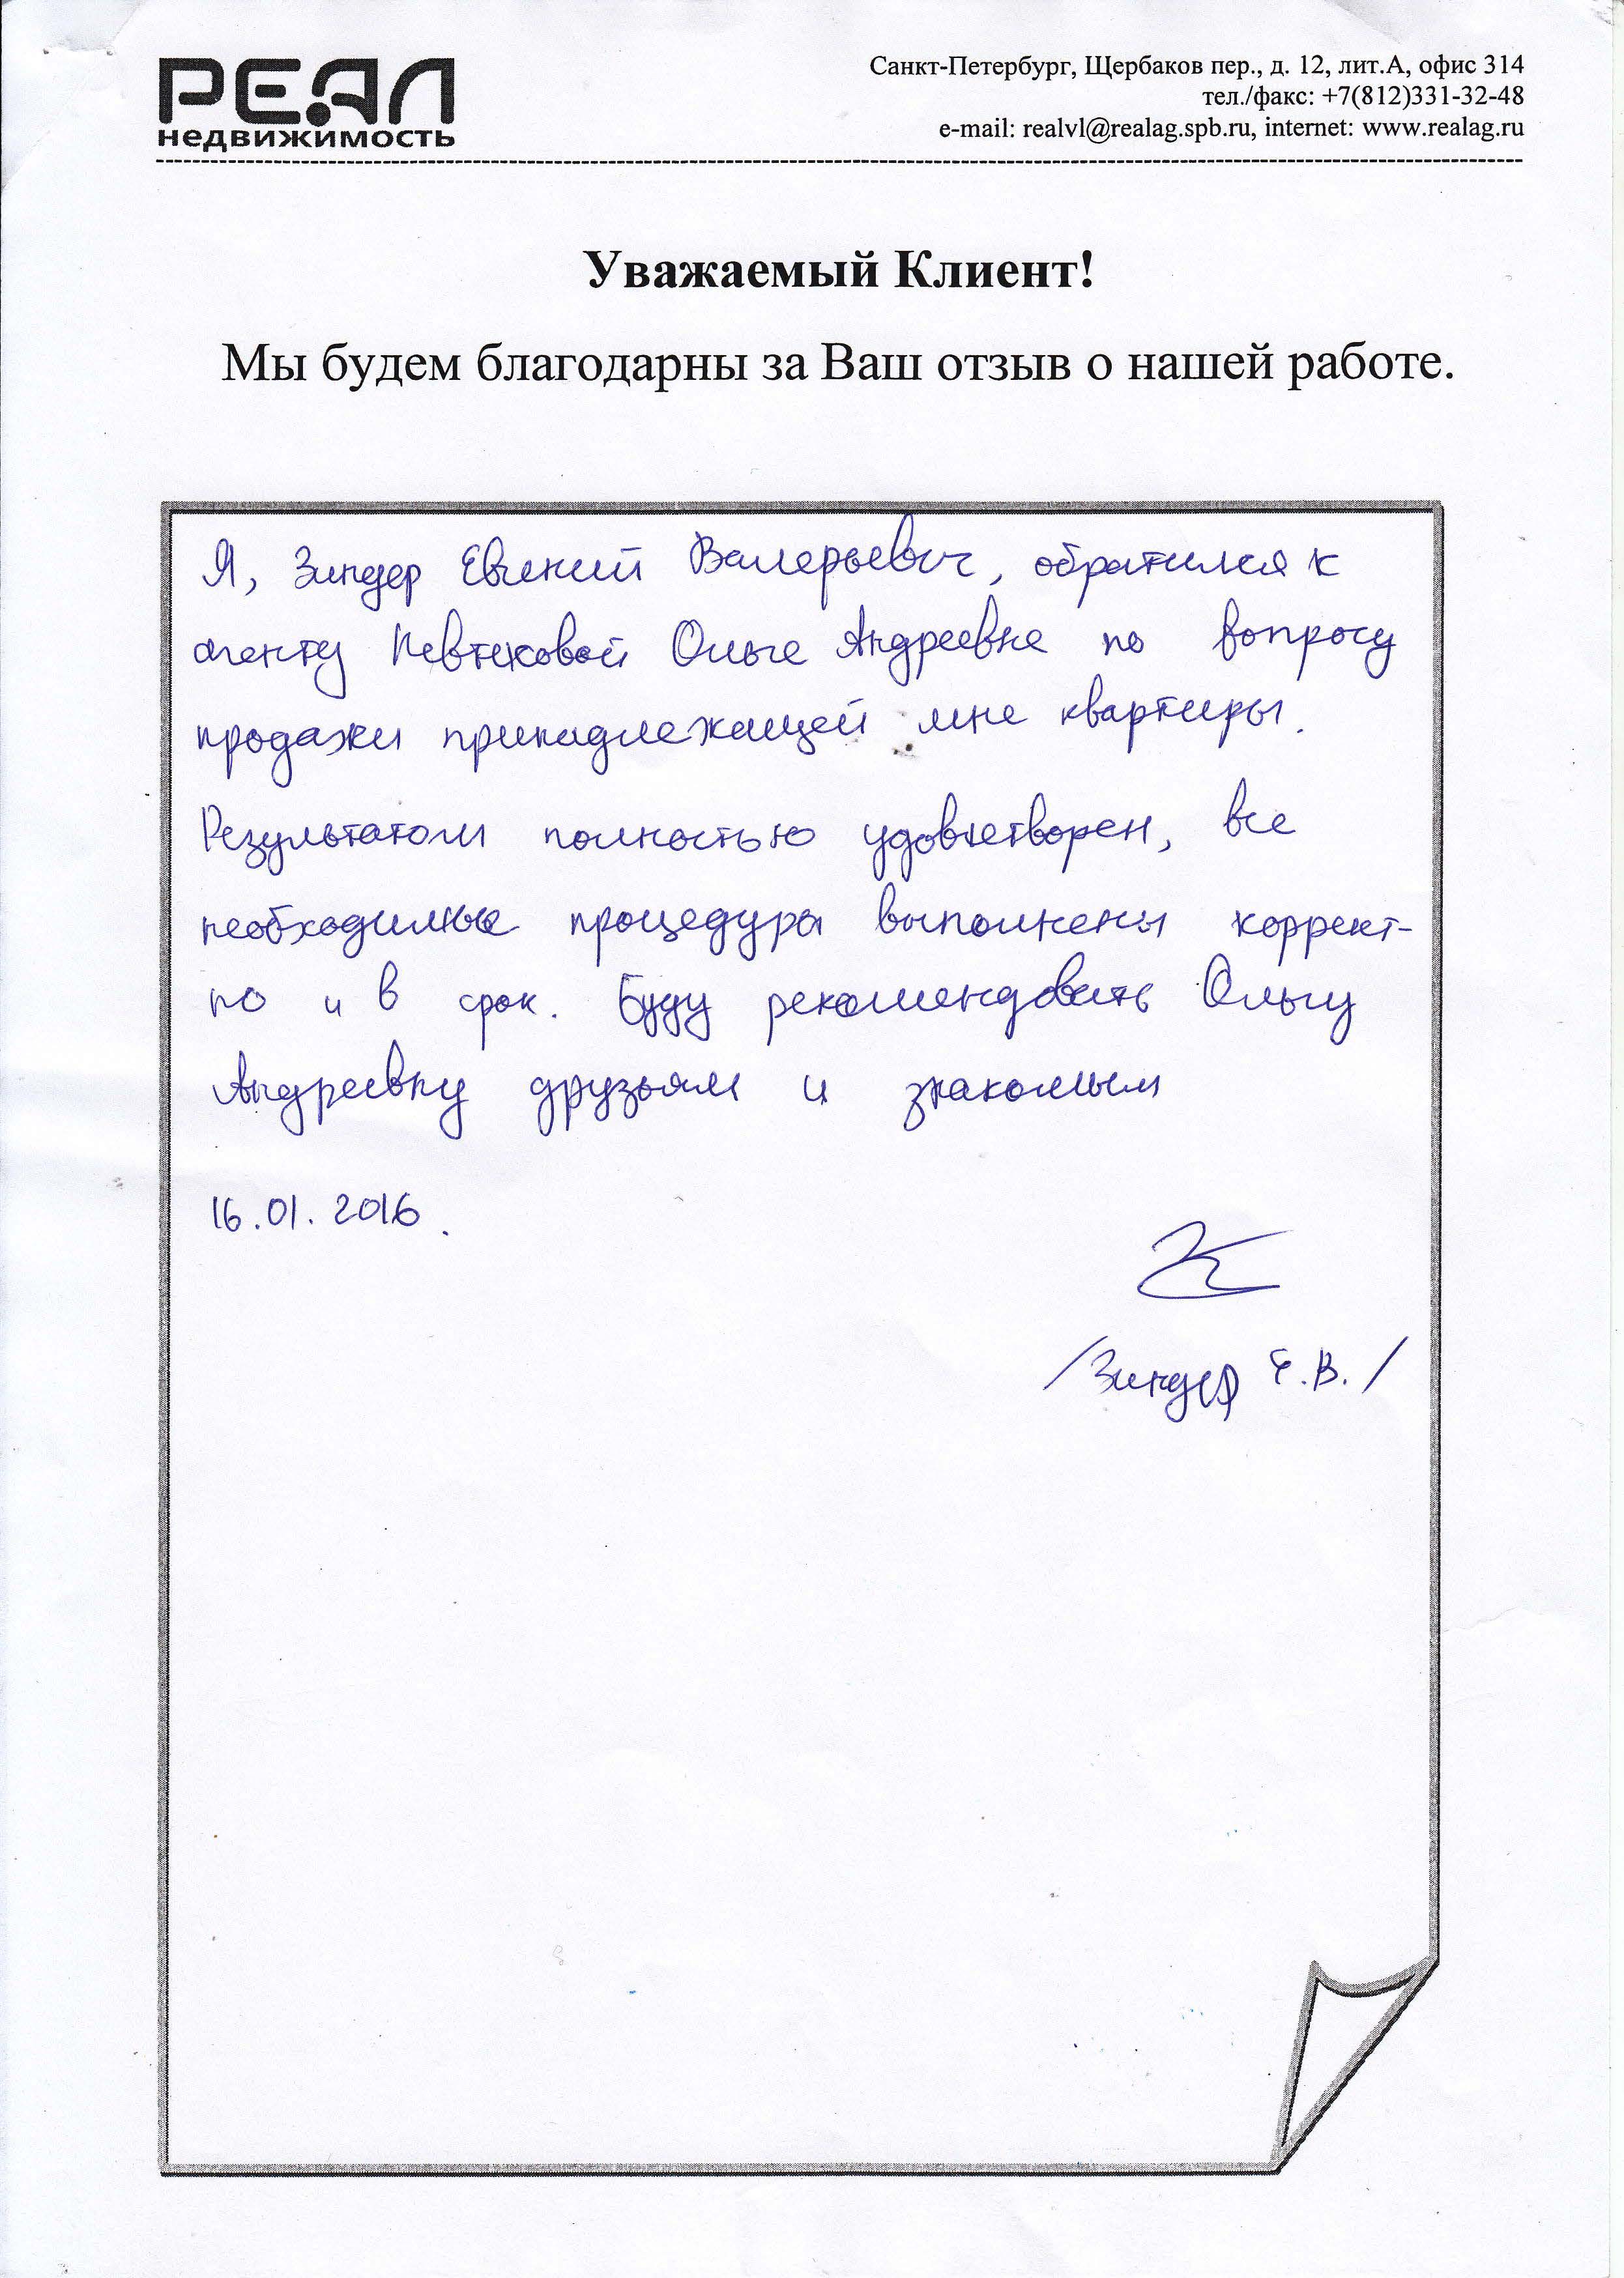 РЕАЛ
недвижимость
Санкт-Петербург, Щербаков пер., д. 12, лит.А, офис 314
тел./факс: +7(812)331-32-48
e-mail: realvl@realag.spb.ru, internet: www.realag.ru
Уважаемый Клиент!
Мы будем благодарны за Ваш отзыв о нашей работе.
Я, Зиндер Евгений Валерьевич, обратился к
агенту Ольге Андреевне по вопросу
продажи принадлежащей мне квартиры.
Результатом полностью удовлетворен, все
необходимые процедуры выполнены коррект-
но и в срок. Буду рекомендовать Ольгу
Андреевну друзьям и знакомым
16.01.2016.
/Зиндер Е.В./